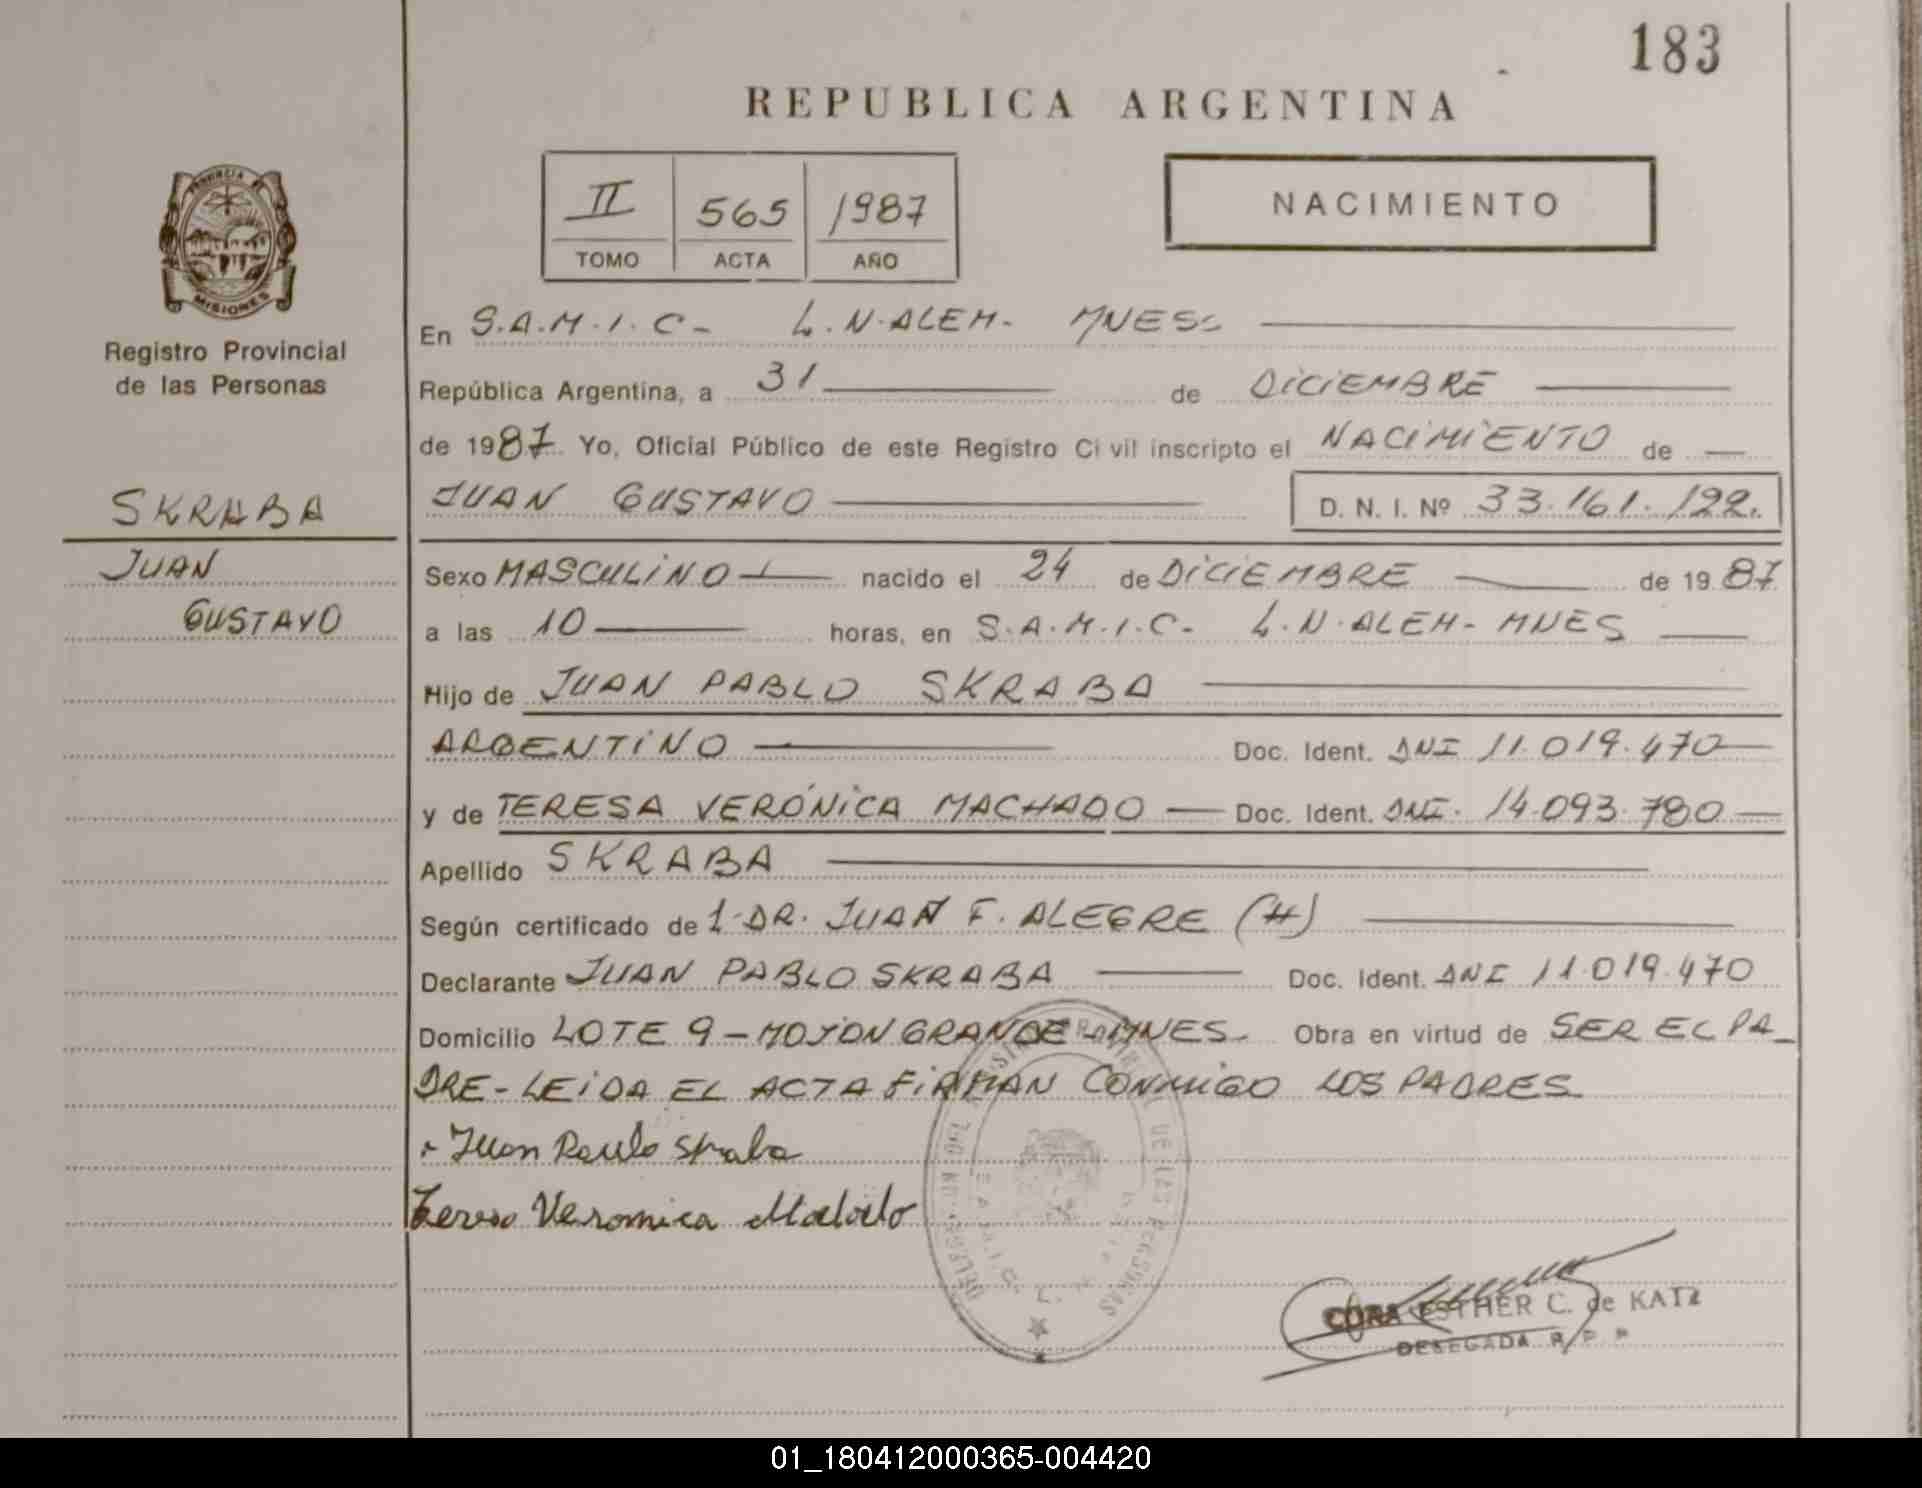 183
REPUBLICA ARGENTINA
PROVINCIA DE
MISIONES
Registro Provincial
de las Personas
II 565 1987
TOMO ACTA AÑO
NACIMIENTO
En S.A.M.I.C- L.N.ALEM- MNES
República Argentina, a 31 de DICIEMBRE
de 1987. Yo, Oficial Público de este Registro Civil inscripto el NACIMIENTO de
JUAN GUSTAVO D. N. I. Nº 33.161.122.
SKRABA
JUAN
GUSTAVO
Sexo MASCULINO nacido el 24 de DICIEMBRE de 1987.
a las 10 horas, en S.A.M.I.C- L.N.ALEM- MNES
Hijo de JUAN PABLO SKRABA
ARGENTINO Doc. Ident. DNI 11.019.470
y de TERESA VERÓNICA MACHADO Doc. Ident. DNI. 14.093.780
Apellido SKRABA
Según certificado de 1-DR. JUAN F. ALEGRE (H)
Declarante JUAN PABLO SKRABA Doc. Ident. DNI 11.019.470
Domicilio LOTE 9 - MOJON GRANDE - MNES. Obra en virtud de SER EL PA_
DRE - LEIDA EL ACTA FIRMAN CONMIGO LOS PADRES
Juan Paulo Skraba
Teresa Veronica Machado
CORA ESTHER C. de KATZ
DELEGADA R. P. P.
01_180412000365-004420